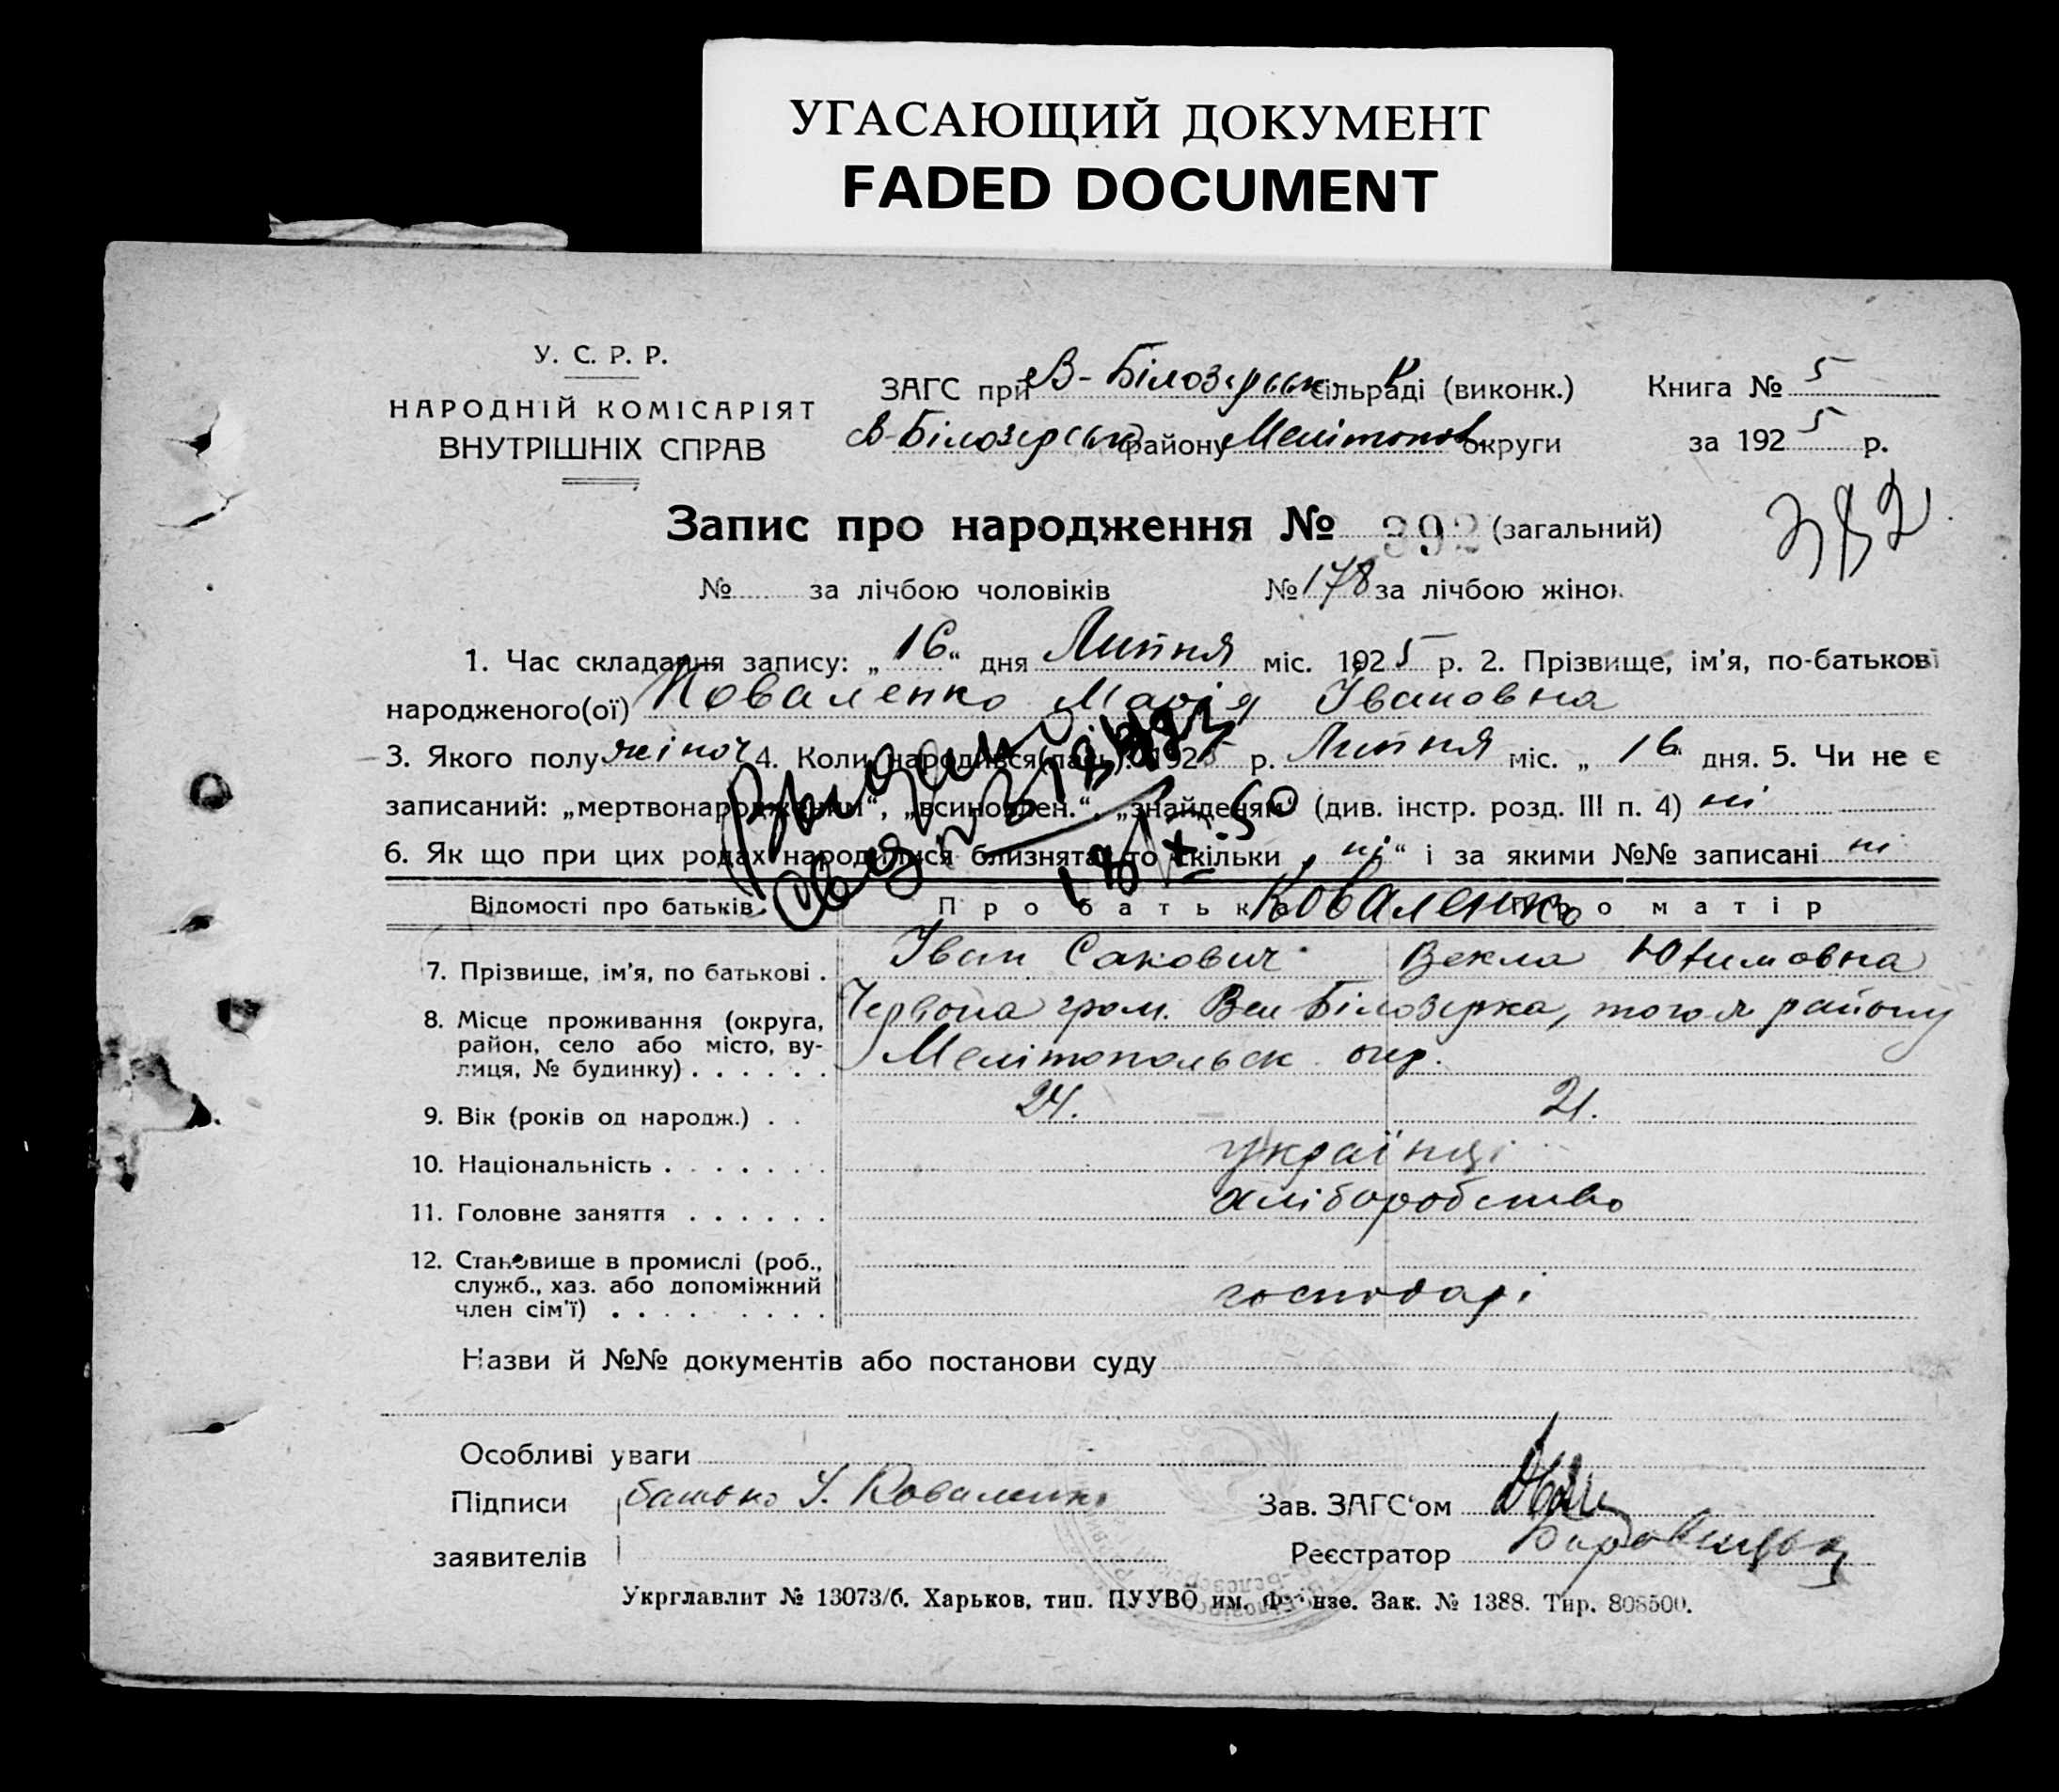 УГАСАЮЩИЙ ДОКУМЕНТ
FADED DOCUMENT
У. С. Р. Р.
НАРОДНІЙ КОМІСАРІЯТ
ВНУТРІШНІХ СПРАВ
ЗАГС при В-Білозерськ сільраді (виконк.)
В-Білозерськ району Мелітопол округи
Книга № 5
за 1925 р.
Запис про народження № 392 (загальний)
382
№ за лічбою чоловіків № 178 за лічбою жінок
1. Час складання запису: „16“ дня Липня міс. 1925 р. 2. Прізвище, ім'я, по-батькові
народженого(ої) Коваленко Марія Івановна
3. Якого полу жіноч 4. Коли народився(лась): 1925 р. Липня міс. „16“ дня. 5. Чи не є
записаний: „мертвонароджений“, „всиновлен.“, „знайденям“ (див. інстр. розд. III п. 4) ні
6. Як що при цих родах народилися близнята, то скільки „ні“ і за якими №№ записані ні
Відомості про батьків. Про батька Про матір
Коваленко
7. Прізвище, ім'я, по батькові . Іван Сакович Векла Юхимовна
8. Місце проживання (округа, район, село або місто, ву-
лиця, № будинку) . . . . . . Червона гром. Вел Білозерка, того ж району
Мелітопольск окр.
9. Вік (років од народж.) . . 24. 21.
10. Національність . . . . . . . українці
11. Головне заняття . . . . . . хліборобство
12. Становище в промислі (роб.,
служб., хаз. або допоміжний
член сім'ї) . . . . . . . . . господарі
Назви й №№ документів або постанови суду
Особливі уваги
Підписи батько І. Коваленко
заявителів
Зав. ЗАГС‘ом
Реєстратор
Укрглавлит № 13073/б. Харьков, тип. ПУУВО им. Фрунзе. Зак. № 1388. Тир. 808500.